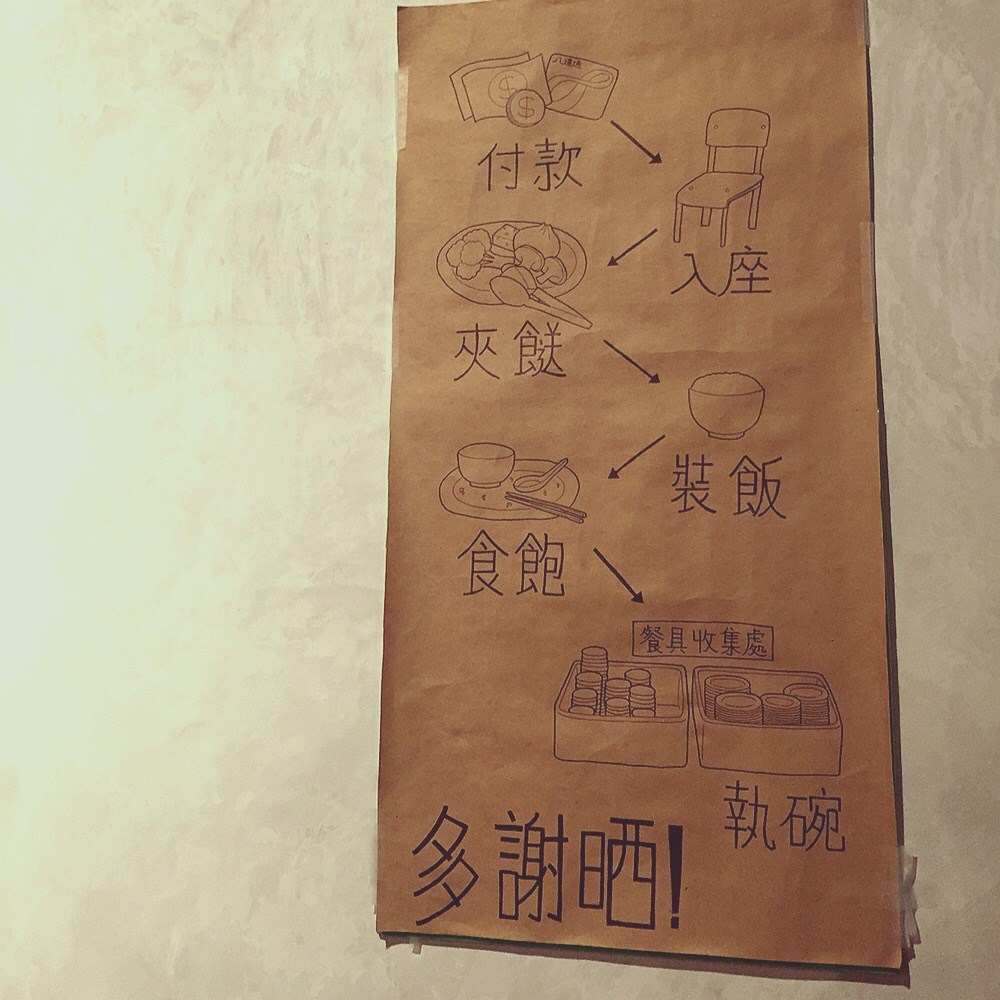 八達通
付款
入座
夾餸
裝飯
食飽
餐具收集處
執碗
多謝晒!